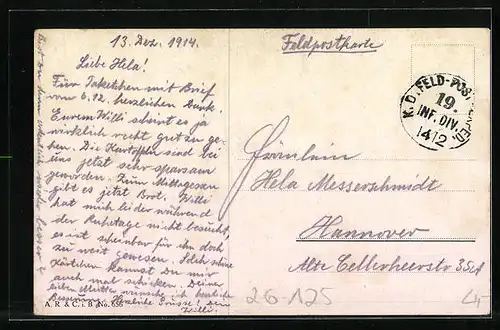 13. Dez. 1914.
Liebe Hela!
Für Paketchen mit Brief
vom 6.12. herzlichen Dank.
Eurem Willi scheint es ja
wirklich recht gut zu ge-
hen. Die Kartoffeln sind bei
uns jetzt sehr sparsam
geworden. Zum Mittagessen
gibt es jetzt Brot. Willi
hat mich leider während
der Ruhetage nicht besucht,
es ist scheinbar für ihn doch
zu weit gewesen. Solch schöne
Kärtchen kannst Du mir
auch mal schicken. Deiner
lieben Mutter wünsche ich herzliche
Besserung. Herzliche Grüsse! Dein
Willi
A. R. & C. i. B. No. 636
Feldpostkarte
K. D. FELD-POST
19.
INF. DIV.
14 12
Fräulein
Hela Messerschmidt
Hannover
Alte Cellerheerstr 35A
26-125